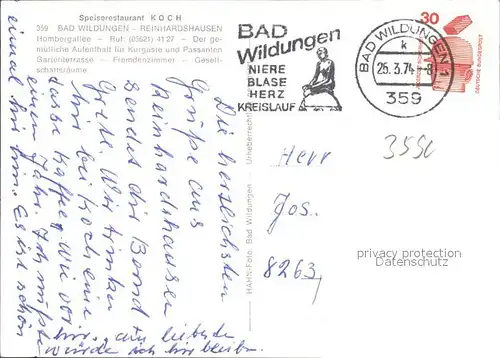 Speiserestaurant KOCH
359 BAD WILDUNGEN - REINHARDSHAUSEN
Hombergallee - Ruf: (05621) 4127 - Der ge-
mütliche Aufenthalt für Kurgäste und Passanten
Gartenterrasse - Fremdenzimmer - Gesell-
schaftsräume
BAD
Wildungen
NIERE
BLASE
HERZ
KREISLAUF
BAD WILDUNGEN 1
k
25.3.74-8
359
30
DEUTSCHE BUNDESPOST
HAHN-Foto, Bad Wildungen - Urheberrechtl
Die herzlichsten
Grüsse aus
Reinhardshausen
sendet dir
Wir trinken
hier bei Koch eine
Kaffee, wie vor
einem Jahr. Ich müsste
einmal hin. Es ist schön
hier, am liebsten
würde ich hier bleiben.
Herr
Jos.
8263,
3550
privacy protection
Datenschutz